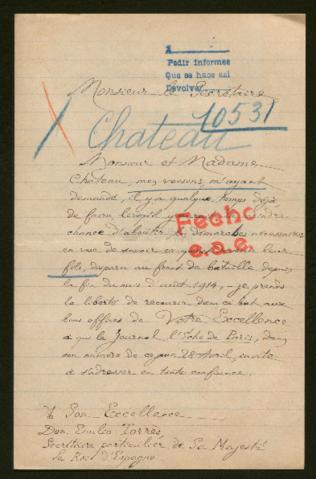 A
Pedir informes
Que se hace así
Devolver
Monsieur le Secrétaire
10531
Chateau
Monsieur et Madame
Château, mes voisins, m'ayant
demandé, il y a quelque temps déjà,
de faire,
chance d'aboutir, les démarches nécessaires
en vue de savoir ce leur
fils, disparu au front de bataille depuis
la fin du mois d'août 1914, - je prends
la liberté de recourir dans ce but aux
bons offices de Votre Excellence
à qui le Journal l'Echo de Paris, dans
son numéro de ce jour 28 Avril, invite
à s'adresser en toute confiance.
Fecho
e.a.e.
A Son Excellence
Don Emilio Torrès
Secrétaire particulier de Sa Majesté
le Roi d'Espagne